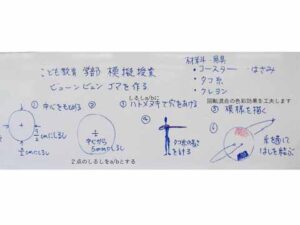 こども教育学部 模擬授業
ビューンビュンゴマを作る
材料 用具
・コースター はさみ
・タコ糸
・クレヨン
① 中心をもとめる
1/2cmにしるし
②
1/2
中心から
5mmにしるし
2点のしるしをa/bとする
しるしa/bに
③ ハトメヌキで穴をあける
④
タコ糸の長さ
をはかる
回転混合の色彩効果を工夫します
⑤ 模様を描く
⑥
糸を通して
はしを結ぶ